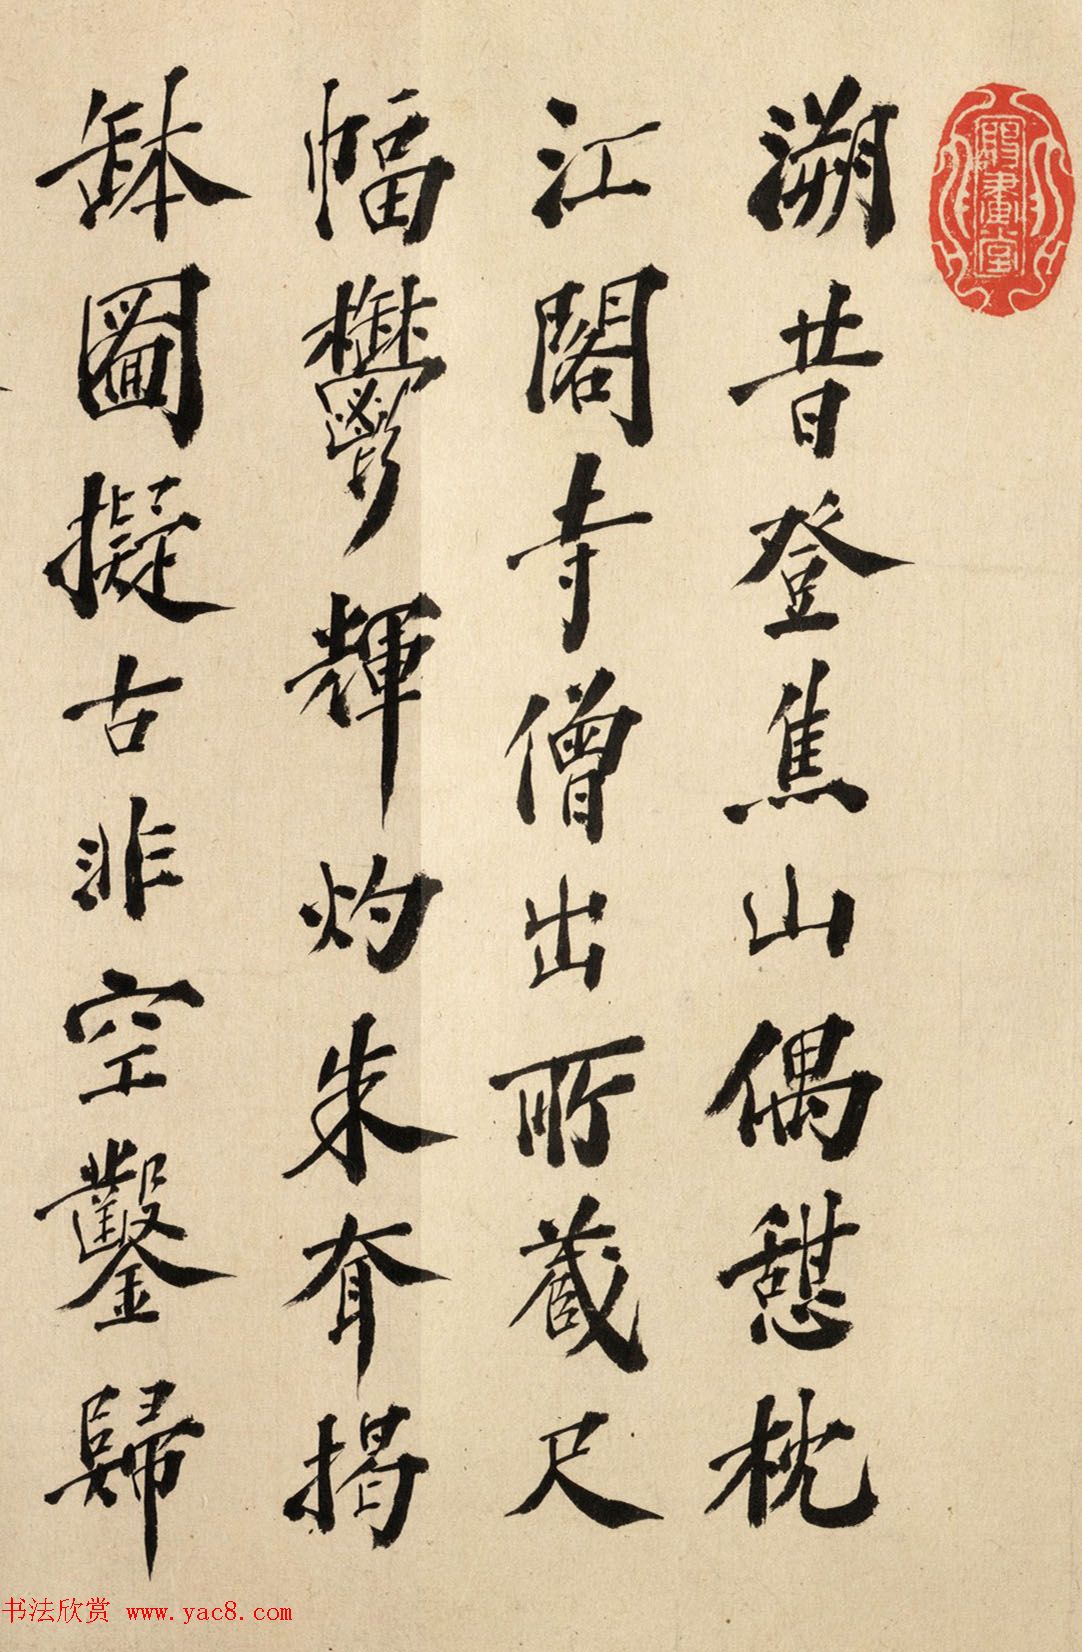 溯昔登焦山偶憩枕
江閣寺僧出所藏尺
幅鬱輝灼朱耷揭
缽圖擬古非空鑿歸
书法欣赏 www.yac8.com